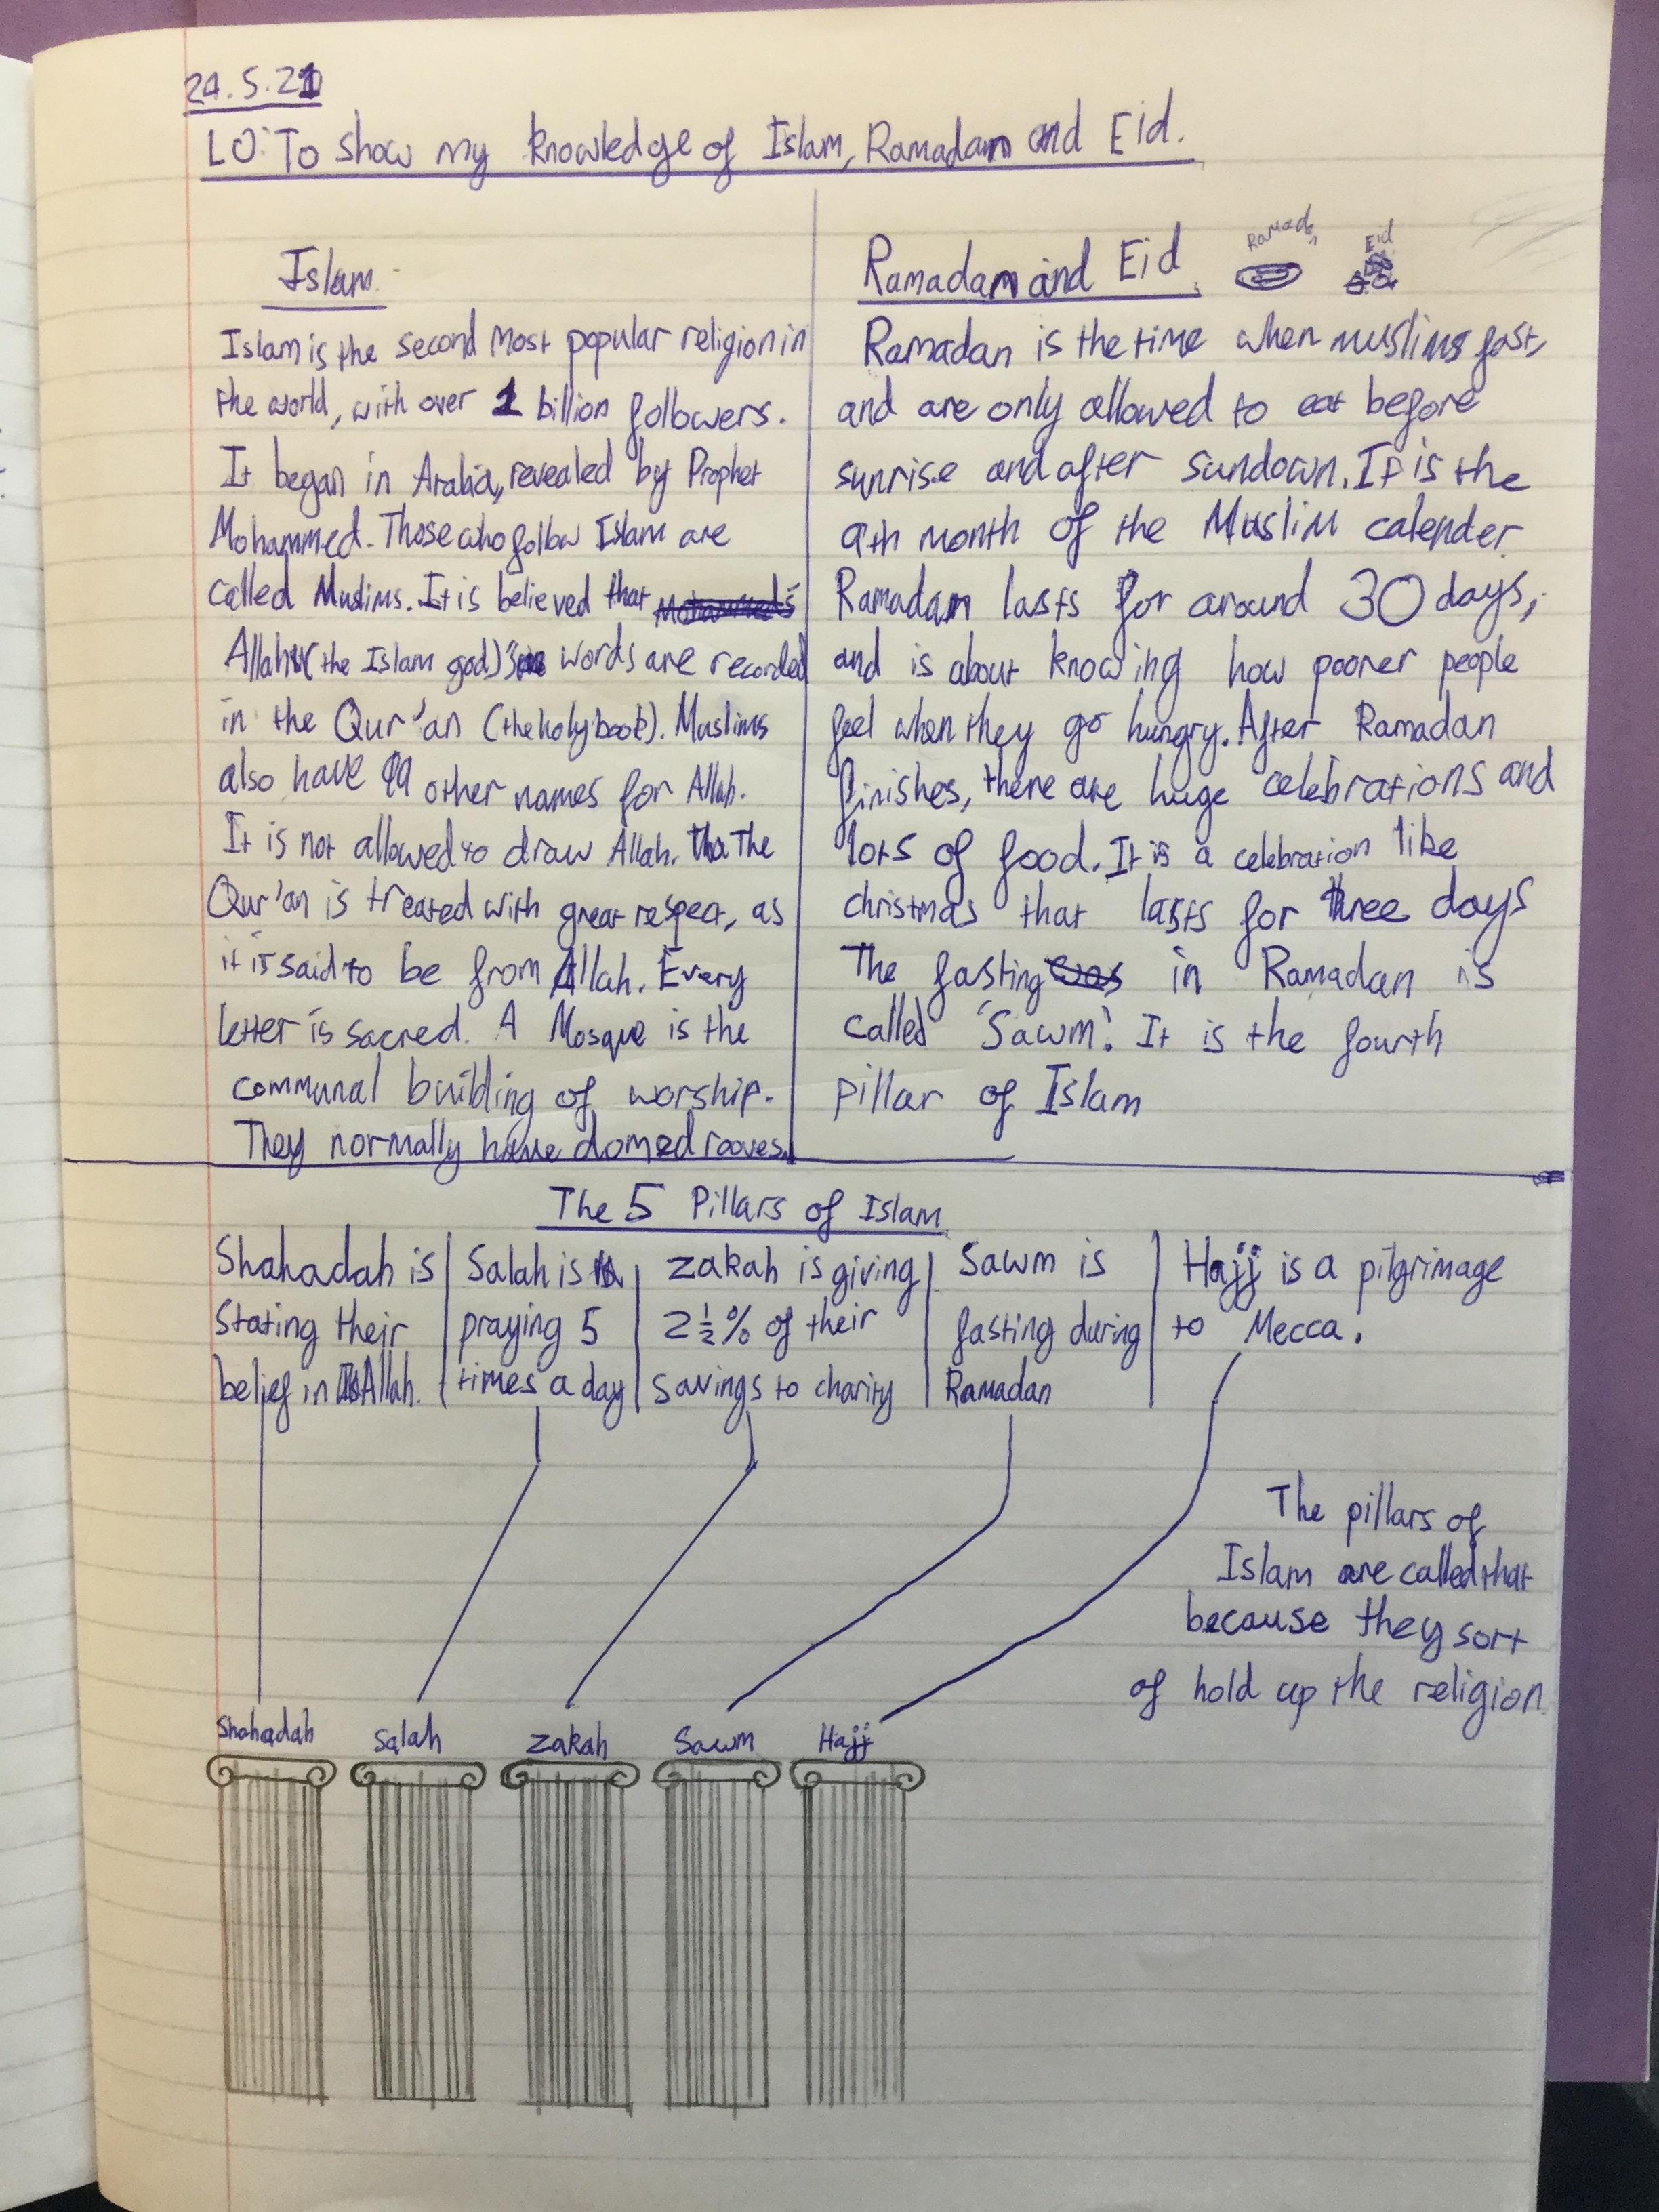 24.5.21
LO: To show my knowledge of Islam, Ramadan and Eid.
Islam
Islam is the second most popular religion in
the world, with over 1 billion followers.
It began in Arabia, revealed by Prophet
Mohammed. Those who follow Islam are
called Muslims. It is believed that
Allah (the Islam god)'s words are recorded
in the Qur'an (the holy book). Muslims
also have 99 other names for Allah.
It is not allowed to draw Allah. The
Qur'an is treated with great respect, as
it is said to be from Allah. Every
letter is sacred. A Mosque is the
communal building of worship.
They normally have domed rooves.
Ramadan and Eid
Ramadan
Eid
Ramadan is the time when muslims fast,
and are only allowed to eat before
sunrise and after sundown. It is the
9th month of the Muslim calender.
Ramadan lasts for around 30 days,
and is about knowing how poorer people
feel when they go hungry. After Ramadan
finishes, there are huge celebrations and
lots of food. It is a celebration like
christmas that lasts for three days
The fasting in Ramadan is
called 'Sawm'. It is the fourth
pillar of Islam
The 5 Pillars of Islam
Shahadah is
stating their
belief in Allah.
Salah is
praying 5
times a day
Zakah is giving
2½% of their
savings to charity
Sawm is
fasting during
Ramadan
Hajj is a pilgrimage
to Mecca.
The pillars of
Islam are called that
because they sort
of hold up the religion
Shahadah
Salah
Zakah
Sawm
Hajj